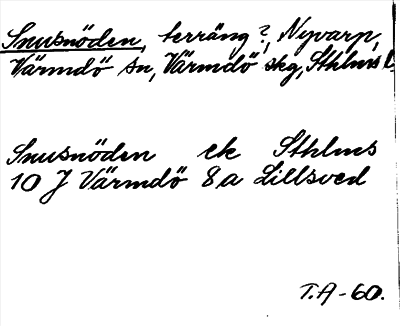 Snusnöden, terräng?, Nyvarp,
Värmdö sn, Värmdö skg, Sthlms l.
Snusnöden ek Sthlms
10 J Värmdö 8a Lillsved
T.A-60.